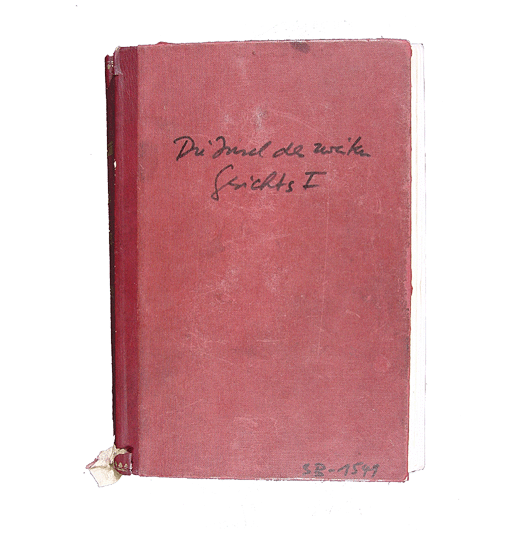 Die Insel des zweiten
Gesichts I
SB-1541